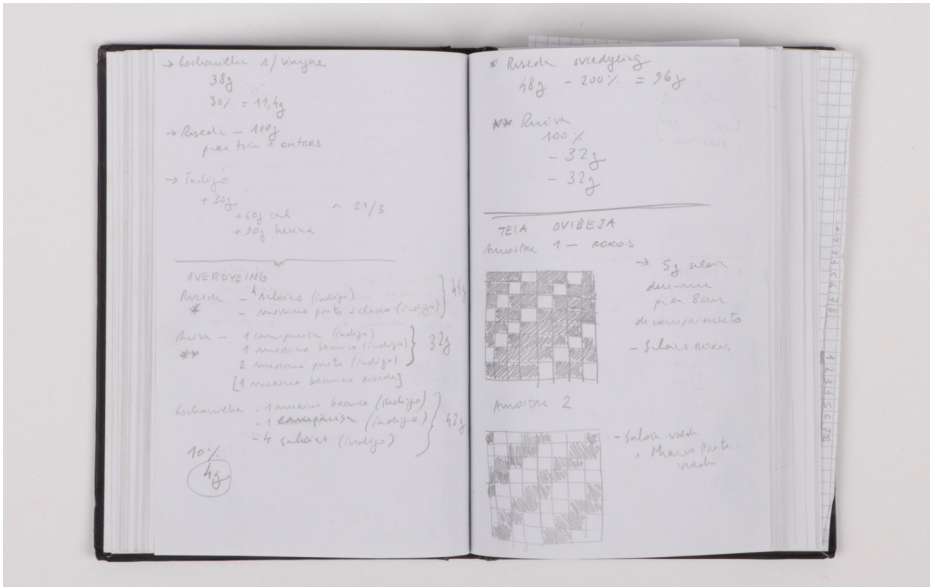 → Cochonilha s/ vinagre
38g
30% = 11,4g
→ Reseda — 100g
para teia e outros
→ Índigo
+ 30g
+ 60g cal
+ 90g henna
~ 2h/3
OVERDYEING
Reseda — 4 saloias (índigo)
* — merino preto + claro (índigo)
Ruiva — 1 campaniça (índigo)
** 1 merino branco (índigo)
2 merino preto (índigo)
32g
[1 merino branco reseda]
Cochonilha - 1 merino branco (índigo)
- 1 campaniça (índigo)
- 4 saloias (índigo)
10%
4g
* Reseda overdyeing
48g — 200% = 96g
** Ruiva
100%
- 32g
- 32g
TEIA OVIBEJA
Amostra 1 — ROXOS
→ 5g saloia
para 8cm
de comprimento
- Saloias ROXOS
Amostra 2
- Saloia verde
+ Merino Preto
verde